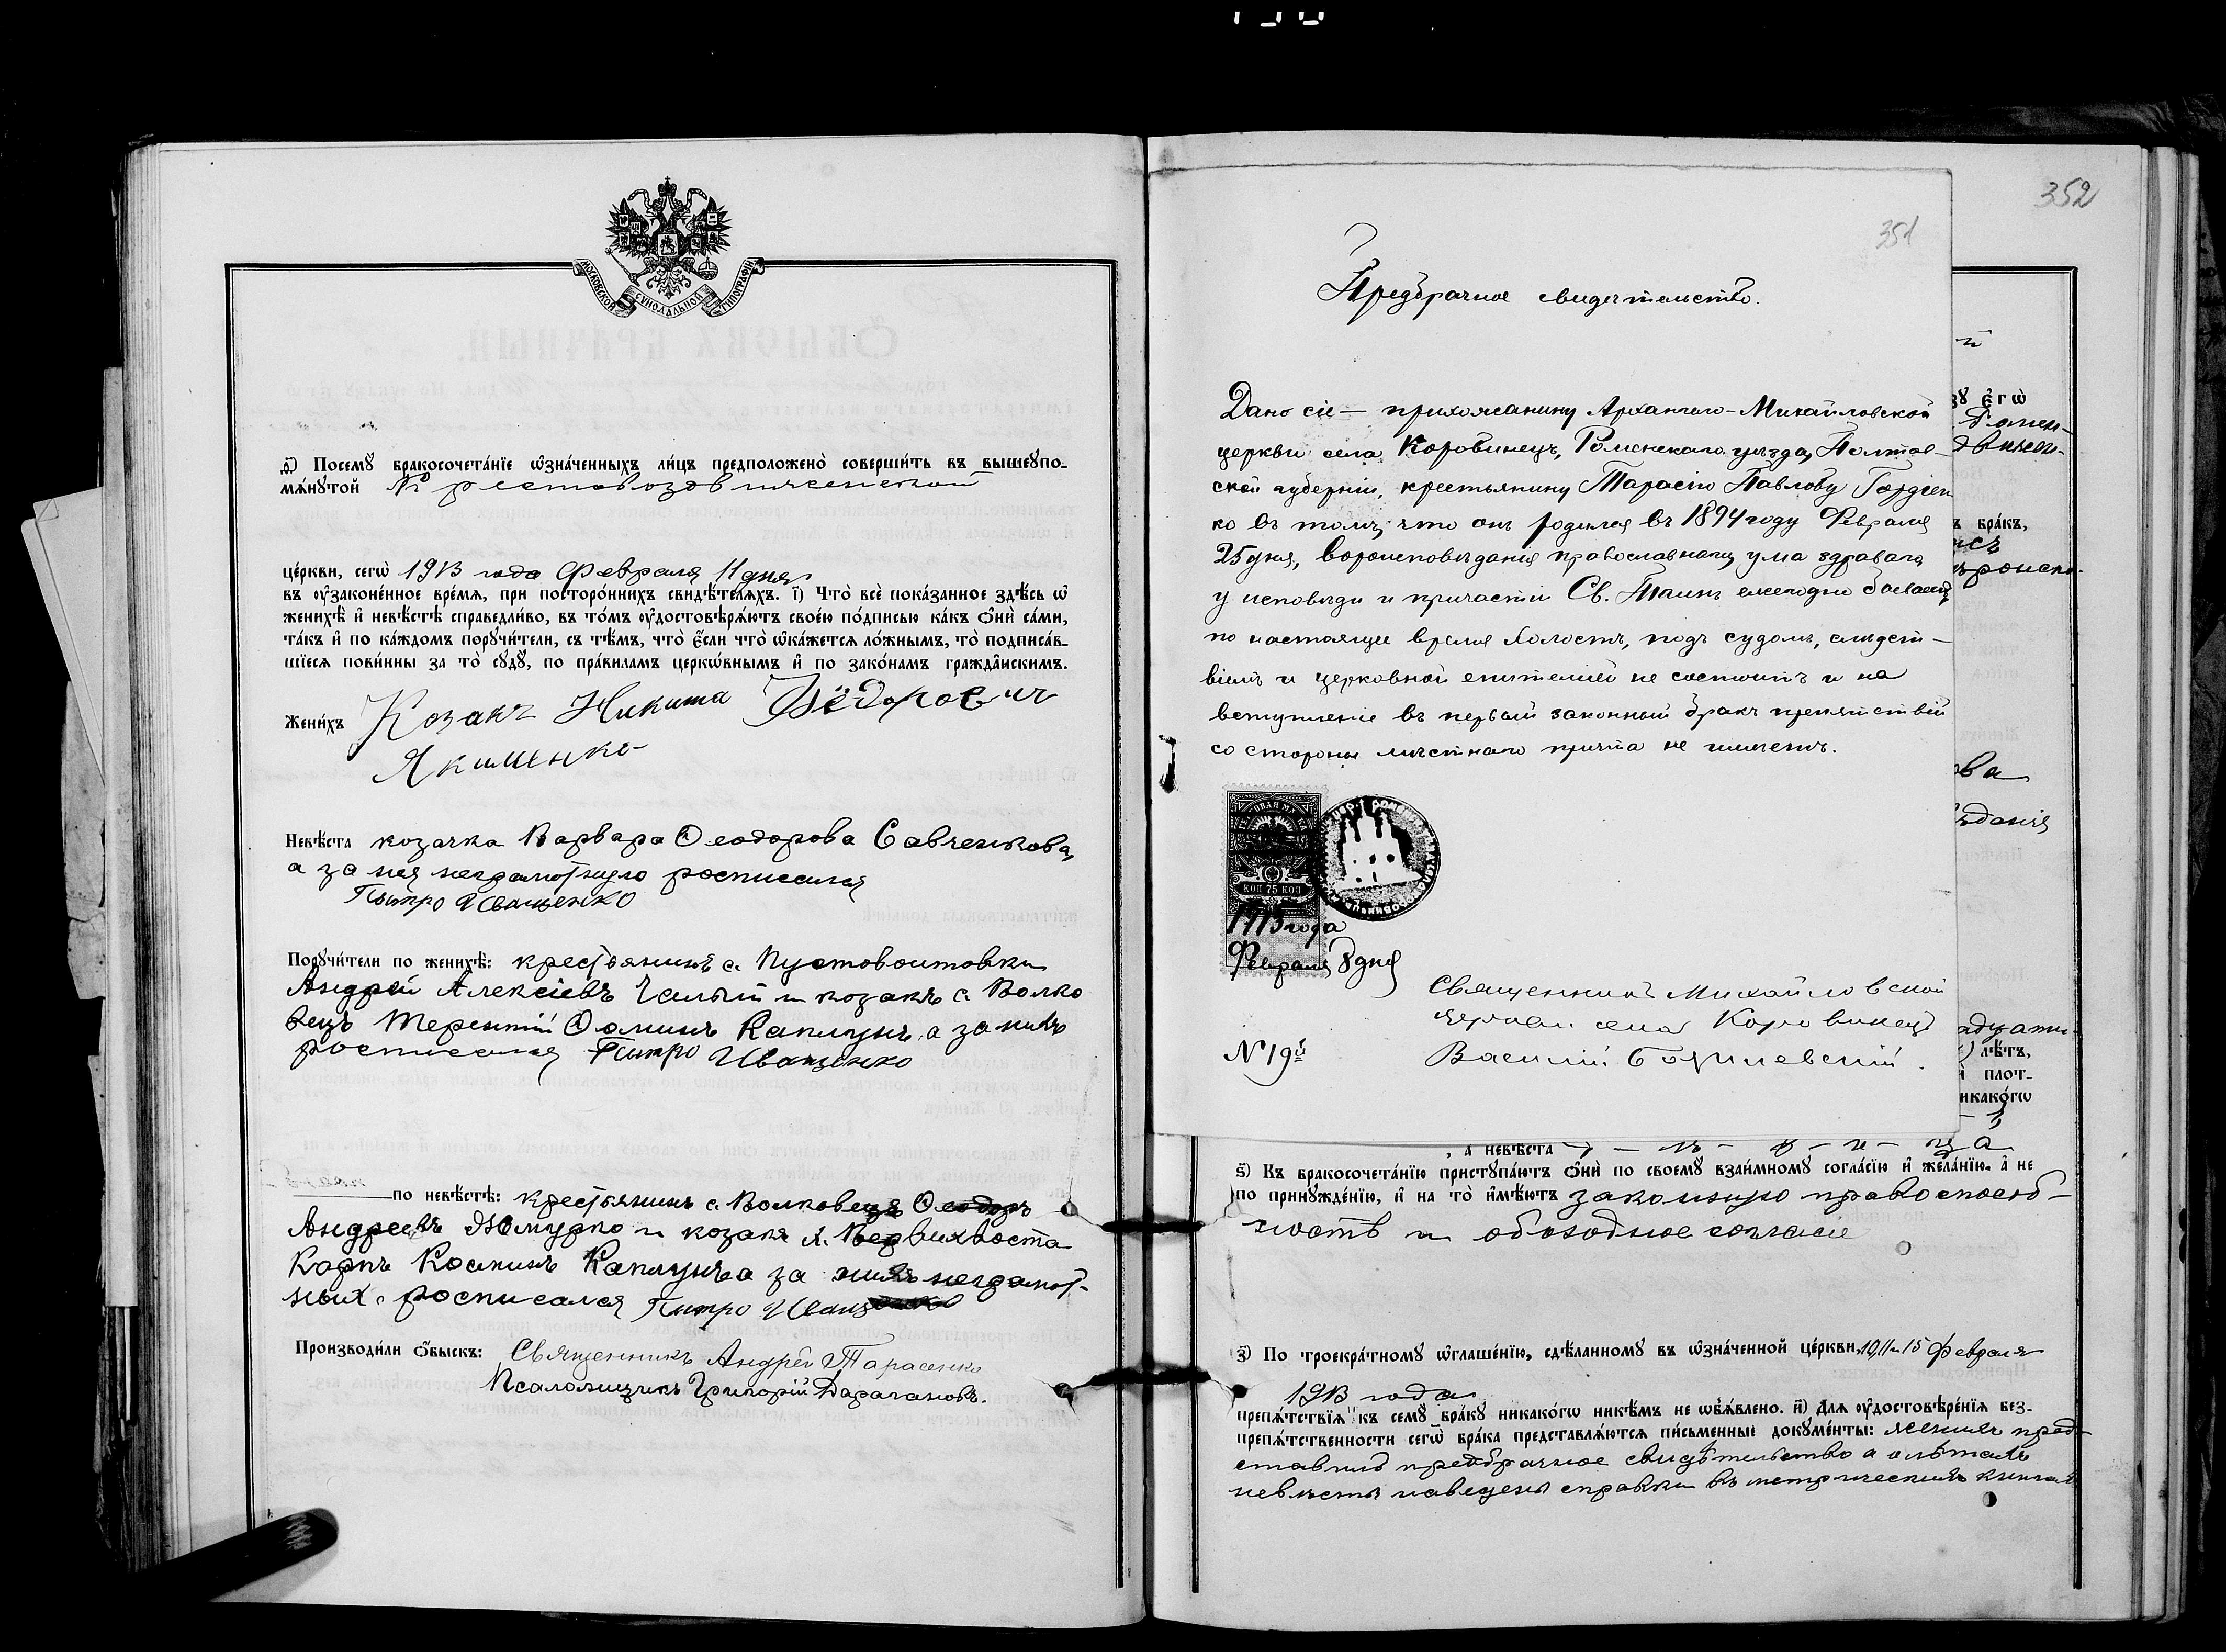 МОСКОВСКОЙ СУНОДАЛЬНОЙ ТИПОГРАФІИ
д҃) Посемꙋ бракосочета́нїе ѡ҆зна́ченныхъ ли́цъ предположено̀ соверши́ть въ вышеупо-
мѧ́нꙋтой Крестовоздвиженской
це́ркви, сегѡ̀ 1913 года Февраля 11 дня
въ ᲂу҆законе́нное вре́мѧ, при посторо́ннихъ свидѣ́телѧхъ. і҃) Что̀ всѐ пока́занное здѣ́сь ѡ҆
женихѣ̀ и҆ невѣ́стѣ справедли́во, въ то́мъ ᲂу҆достовѣрѧ́ютъ свое́ю по́дписью ка́къ ѻ҆нѝ са́ми,
та́къ и҆ по ка́ждомъ порꙋчи́тели, съ тѣ́мъ, что̀ є҆́сли что̀ ѡ҆ка́жетсѧ ло́жнымъ, то̀ подписа́в-
шїесѧ пови́нны за то̀ сꙋдꙋ̀, по пра́виламъ церко́внымъ и҆ по зако́намъ гражда́нскимъ.
Жени́хъ Козакъ Никита Фёдорович
Якименко
Невѣ́ста козачка Варвара Ѳеодорова Савченкова,
а за нея неграмотную росписался
Пытро Иващенко
Порꙋчи́тели по женихѣ̀: крестьянинъ с. Пустовойтовки
Андрей Алексіевъ Галый и козакъ с. Волко
вецъ Терентій Ѳоминъ Каплунъ, а за нихъ
росписался Пытро Иващенко
по невѣ́стѣ: крестьянинъ с. Волковецъ Ѳеодоръ
Андреевъ и козакъ с. Вердвихвоста
Карпъ Косминъ Каплунъ а за нихъ неграмот-
ныхъ росписался Пытро
Производи́ли ѻ҆́быскъ: Священникъ Андрей Тарасенко
Псаломщикъ Григорій Дараганов.
352
351
Предбрачное свидетельство.
Дано сіе — прихожанину Архангело-Михайловской
церкви села Коровинецъ, Роменскаго уѣзда, Полтав-
ской губерніи, крестьянину Тарасію Павлову Гордіен
ко въ томъ, что онъ родился въ 1894 году Февраля
25 дня, вѣроисповѣданія православнаго, ума здраваго,
у исповѣди и причастія Св. Таинъ ежегодно бываетъ,
по настоящее время холостъ, подъ судомъ, слѣдст-
віемъ и церковной епитеміей не состоитъ и на
вступленіе въ первый законный бракъ препятствій
со стороны мѣстнаго причта не имѣетъ.
КОП 75 КОП
1913 года
Февраля 8 дня
Священникъ Михайловской
церкви села Коровинец
№ 19й Василій
, а невѣ́ста
ѕ҃) Къ бракосочета́нїю пристꙋпа́ютъ ѻ҆нѝ по своемꙋ̀ взаи́мномꙋ согла́сїю и҆ жела́нїю, а҆ не
по принꙋжде́нїю, и҆ на то̀ и҆мѣ́ютъ законную правоспособ-
ность и обоюдное согласіе
з҃) По троекра́тномꙋ ѡ҆глаше́нїю, сдѣ́ланномꙋ въ ѡ҆зна́ченной це́ркви 10, 11 и 15 Февраля
1913 года
препѧ́тствїѧ къ семꙋ̀ бра́кꙋ никако́гѡ никѣ́мъ не ѡ҆б̾ѧ́влено. и҃) Длѧ ᲂу҆достовѣре́нїѧ без-
препѧ́тственности сегѡ̀ бра́ка представлѧ́ютсѧ пи́сьменные докꙋме́нты: женихъ пред-
ставилъ предбрачное свидѣтельство а о лѣтахъ
невѣсты наведены справки въ метрическихъ книгахъ